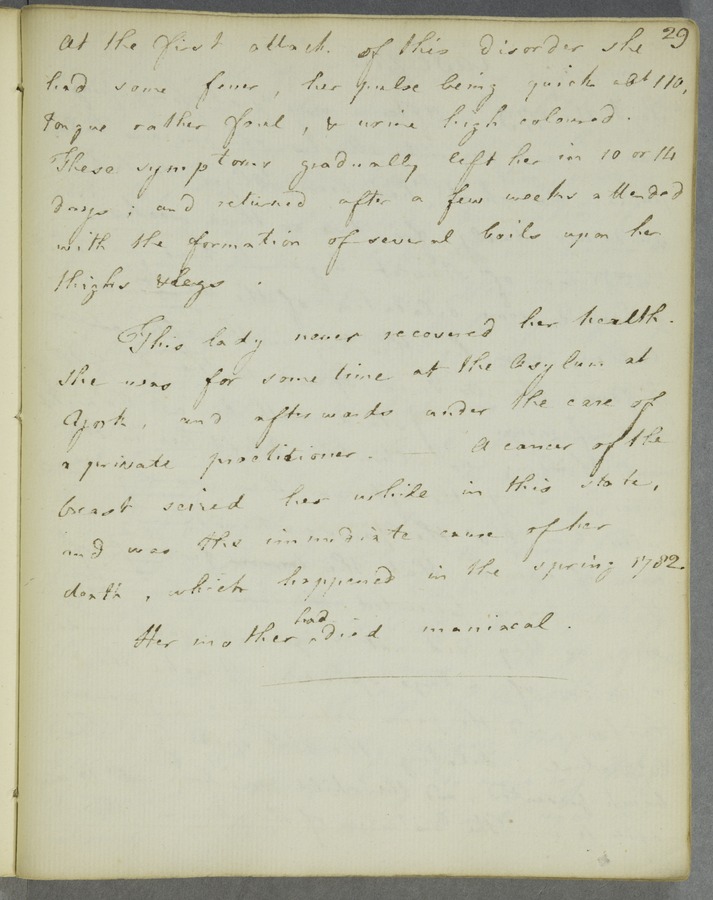 29
At the first attack of this disorder she
had some fever, her pulse being quick abt 110,
tongue rather foul, & urine high coloured.
These symptoms gradually left her in 10 or 14
days; and returned after a few weeks attended
with the formation of several boils upon her
thighs & legs.
This lady never recovered her health.
She was for some time at the Asylum at
York, and afterwards under the care of
a private practitioner. — A cancer of the
breast seized her while in this state,
and was the immediate cause of her
death, which happened in the spring 1782.
had
Her mother ‸died maniacal.